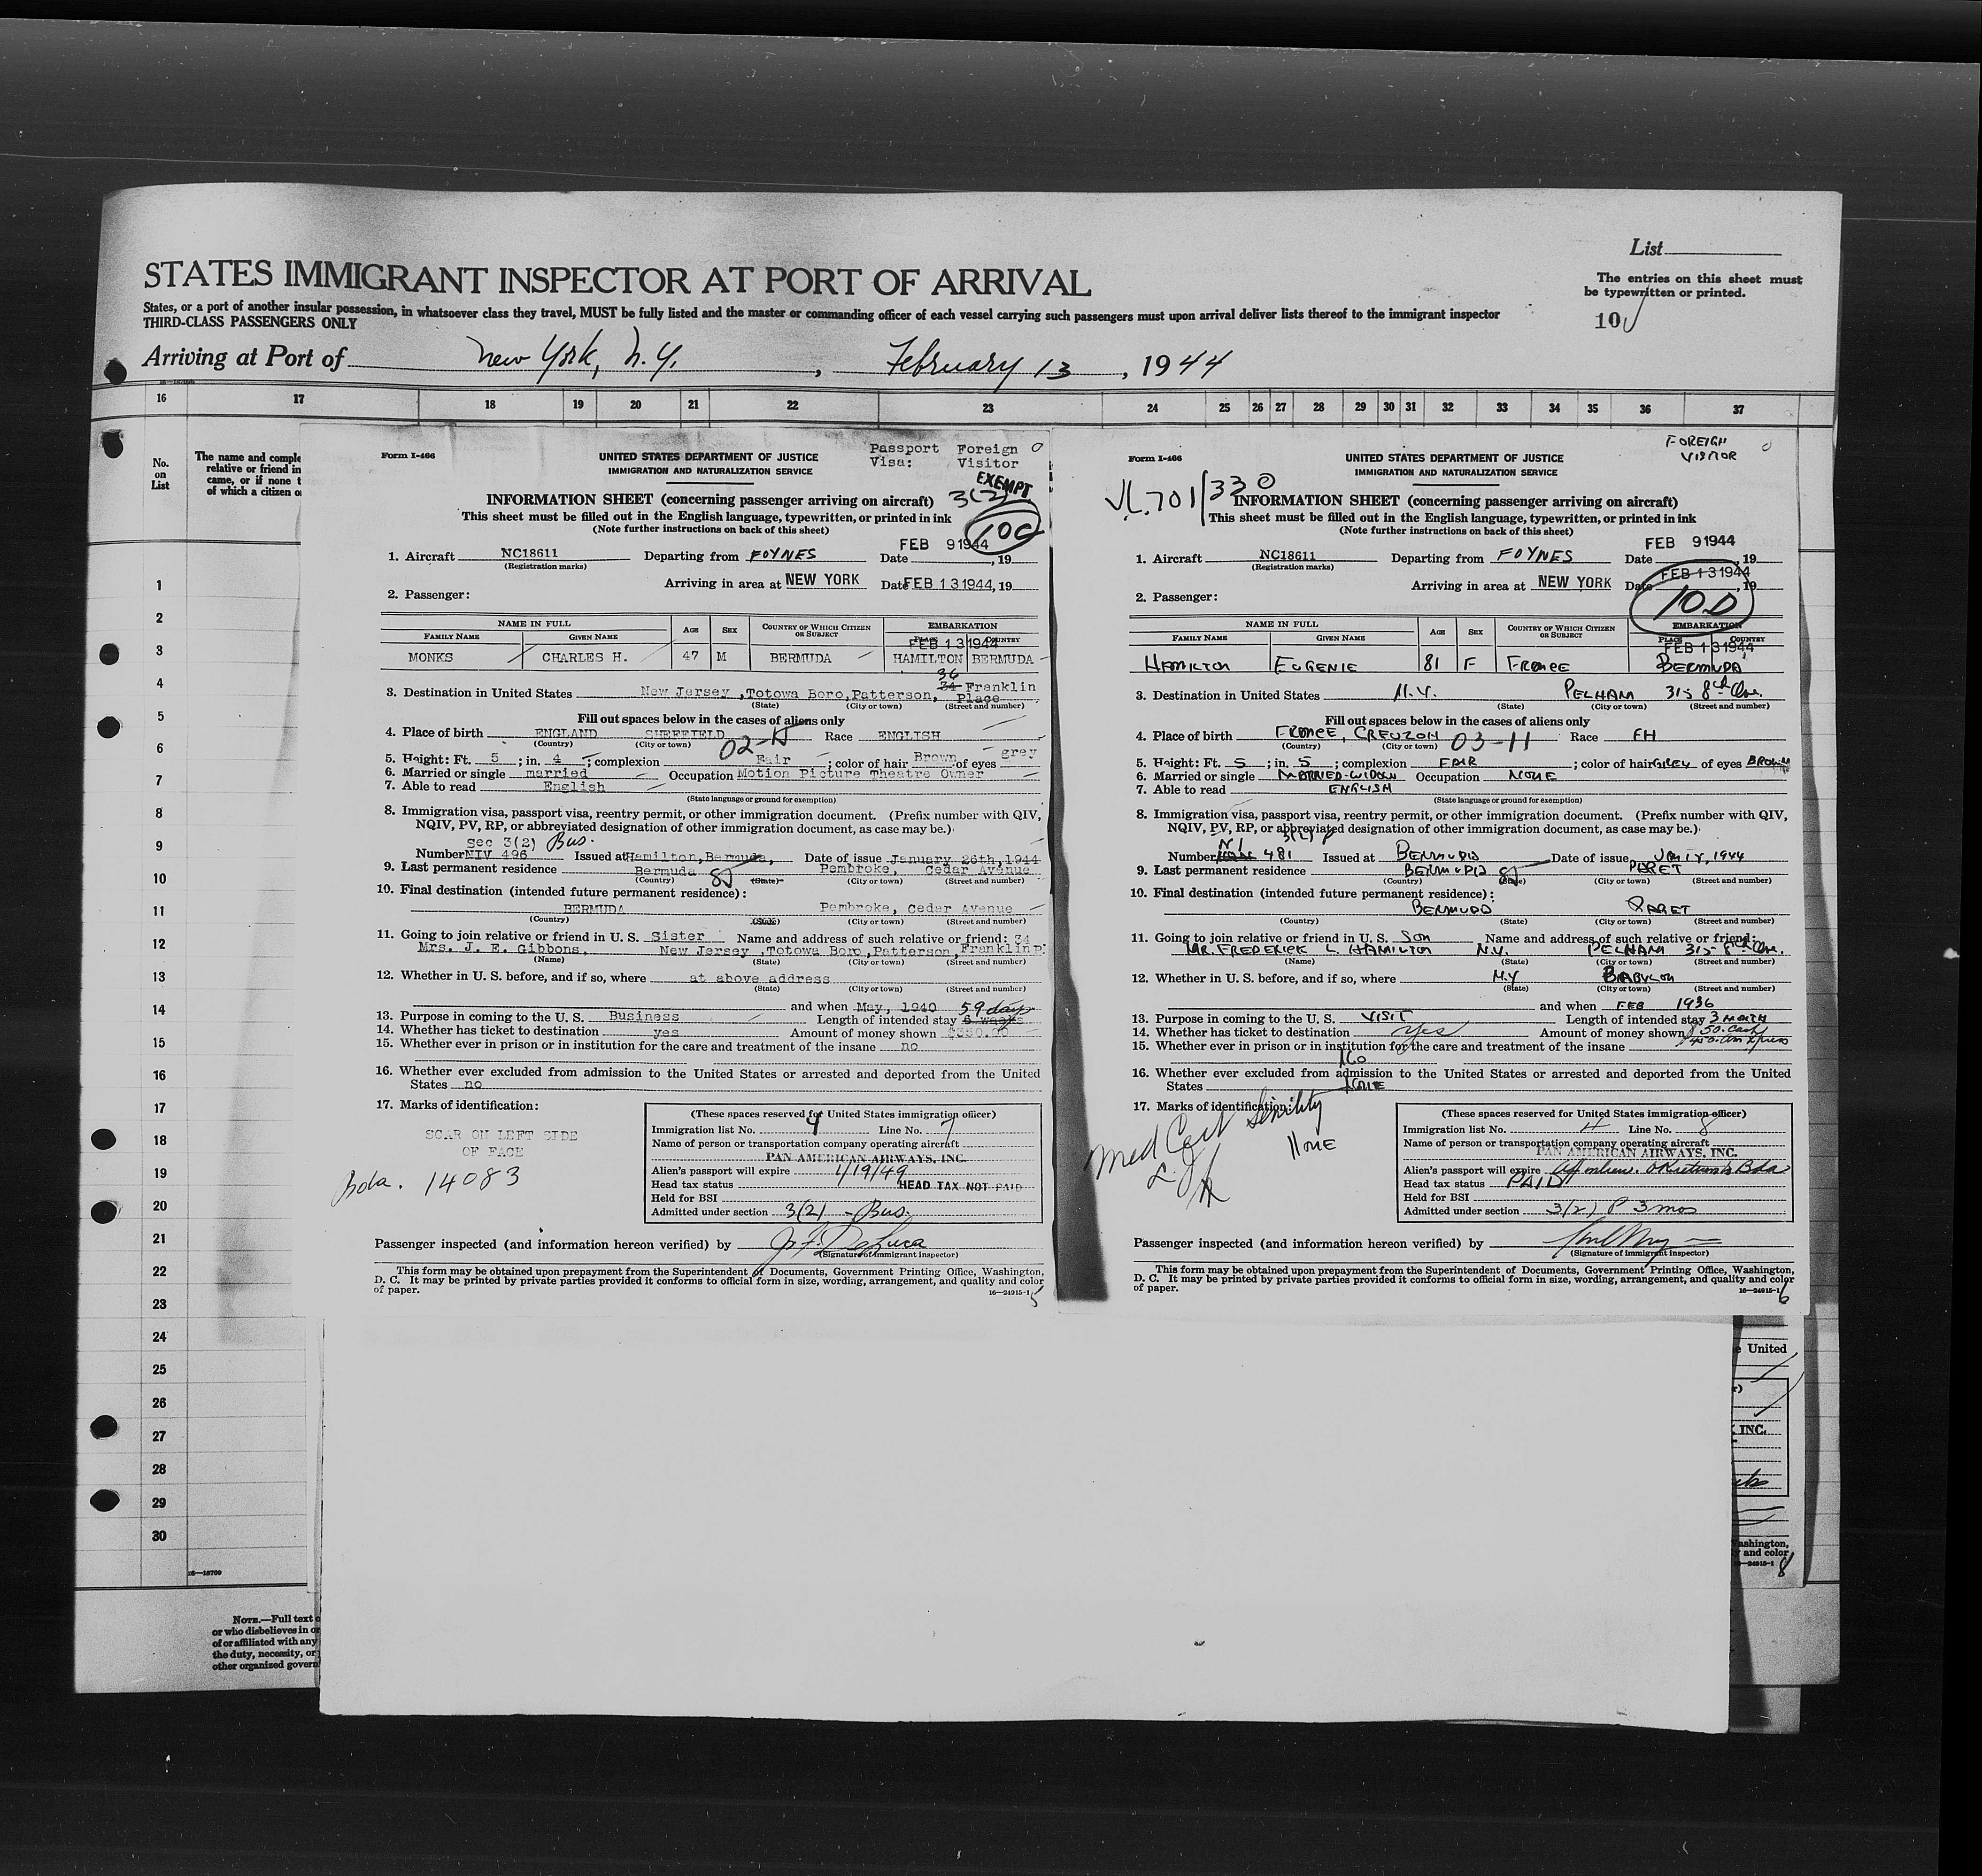 List
STATES IMMIGRANT INSPECTOR AT PORT OF ARRIVAL
The entries on this sheet must
be typewritten or printed.
States, or a port of another insular possession, in whatsoever class they travel, MUST be fully listed and the master or commanding officer of each vessel carrying such passengers must upon arrival deliver lists thereof to the immigrant inspector
THIRD-CLASS PASSENGERS ONLY
10
Arriving at Port of New York, N. Y. , February 13 , 1944
16 17 18 19 20 21 22 23 24 25 26 27 28 29 30 31 32 33 34 35 36 37
No.
on
List
The name and comple
relative or friend in
came, or if none t
of which a citizen o
1
2
3
4
5
6
7
8
9
10
11
12
13
14
15
16
17
18
19
20
21
22
23
24
25
26
27
28
29
30
16—18709
NOTE.—Full text o
or who disbelieves in or
of or affiliated with any
the duty, necessity, or
other organized govern
Form I-466
UNITED STATES DEPARTMENT OF JUSTICE
IMMIGRATION AND NATURALIZATION SERVICE
Passport Foreign
Visa: Visitor
EXEMPT
3(2)
INFORMATION SHEET (concerning passenger arriving on aircraft)
This sheet must be filled out in the English language, typewritten, or printed in ink
(Note further instructions on back of this sheet)
10C
1. Aircraft NC18611 Departing from FOYNES Date FEB 9 1944, 19
(Registration marks)
Arriving in area at NEW YORK Date FEB 13 1944, 19
2. Passenger:
NAME IN FULL AGE SEX COUNTRY OF WHICH CITIZEN OR SUBJECT EMBARKATION
FAMILY NAME GIVEN NAME PLACE COUNTRY
FEB 13 1944
MONKS CHARLES H. 47 M BERMUDA HAMILTON BERMUDA
3. Destination in United States New Jersey, Totowa Boro, Patterson, 34 36 Franklin Place
(State) (City or town) (Street and number)
Fill out spaces below in the cases of aliens only
4. Place of birth ENGLAND SHEFFIELD Race ENGLISH
(Country) (City or town)
5. Height: Ft. 5 ; in. 4 ; complexion Fair ; color of hair Brown of eyes grey
6. Married or single married Occupation Motion Picture Theatre Owner
7. Able to read English
(State language or ground for exemption)
8. Immigration visa, passport visa, reentry permit, or other immigration document. (Prefix number with QIV,
NQIV, PV, RP, or abbreviated designation of other immigration document, as case may be.)
Sec 3(2) Bus.
Number NIV 496 Issued at Hamilton, Bermuda, Date of issue January 26th, 1944
9. Last permanent residence Bermuda Pembroke, Cedar Avenue
(Country) (State) (City or town) (Street and number)
10. Final destination (intended future permanent residence):
BERMUDA Pembroke, Cedar Avenue
(Country) (State) (City or town) (Street and number)
11. Going to join relative or friend in U. S. Sister Name and address of such relative or friend: 34
Mrs. J. E. Gibbons, New Jersey, Totowa Boro, Patterson, Franklin P
(Name) (State) (City or town) (Street and number)
12. Whether in U. S. before, and if so, where at above address
(State) (City or town) (Street and number)
and when May, 1940 59 days
13. Purpose in coming to the U. S. Business Length of intended stay 6 weeks
14. Whether has ticket to destination yes Amount of money shown
15. Whether ever in prison or in institution for the care and treatment of the insane no
16. Whether ever excluded from admission to the United States or arrested and deported from the United
States no
17. Marks of identification:
SCAR ON LEFT SIDE
OF FACE
Bda. 14083
(These spaces reserved for United States immigration officer)
Immigration list No. 4 Line No. 7
Name of person or transportation company operating aircraft
PAN AMERICAN AIRWAYS, INC.
Alien's passport will expire 1/19/49
Head tax status HEAD TAX NOT PAID
Held for BSI
Admitted under section 3(2) - Bus.
Passenger inspected (and information hereon verified) by J. F. DeLuca
(Signature of immigrant inspector)
This form may be obtained upon prepayment from the Superintendent of Documents, Government Printing Office, Washington,
D. C. It may be printed by private parties provided it conforms to official form in size, wording, arrangement, and quality and color
of paper.
16—24915-1
5
Form I-466
UNITED STATES DEPARTMENT OF JUSTICE
IMMIGRATION AND NATURALIZATION SERVICE
FOREIGN
VISITOR
701/330
INFORMATION SHEET (concerning passenger arriving on aircraft)
This sheet must be filled out in the English language, typewritten, or printed in ink
(Note further instructions on back of this sheet)
1. Aircraft NC18611 Departing from FOYNES Date FEB 9 1944, 19
(Registration marks)
Arriving in area at NEW YORK Date FEB 13 1944, 19
10D
2. Passenger:
NAME IN FULL AGE SEX COUNTRY OF WHICH CITIZEN OR SUBJECT EMBARKATION
FAMILY NAME GIVEN NAME PLACE COUNTRY
FEB 13 1944
HAMILTON EUGENIE 81 F FRANCE BERMUDA
3. Destination in United States N.Y. PELHAM 315 8th Ave.
(State) (City or town) (Street and number)
Fill out spaces below in the cases of aliens only
4. Place of birth FRANCE, CREUZON 03-11 Race FH
(Country) (City or town)
5. Height: Ft. 5 ; in. 5 ; complexion FAIR ; color of hair GREY of eyes BROWN
6. Married or single MARRIED-WIDOW Occupation NONE
7. Able to read ENGLISH
(State language or ground for exemption)
8. Immigration visa, passport visa, reentry permit, or other immigration document. (Prefix number with QIV,
NQIV, PV, RP, or abbreviated designation of other immigration document, as case may be.)
3(2)
Number 481 Issued at BERMUDA Date of issue 1944
9. Last permanent residence BERMUDA PARET
(Country) (State) (City or town) (Street and number)
10. Final destination (intended future permanent residence):
BERMUDA PARET
(Country) (State) (City or town) (Street and number)
11. Going to join relative or friend in U. S. SON Name and address of such relative or friend:
MR. FREDERICK L. HAMILTON N.Y. PELHAM 315-8th Ave.
(Name) (State) (City or town) (Street and number)
12. Whether in U. S. before, and if so, where N.Y BABYLON
(State) (City or town) (Street and number)
and when FEB 1936
13. Purpose in coming to the U. S. VISIT Length of intended stay 3 MONTH
14. Whether has ticket to destination yes Amount of money shown $50. cash
15. Whether ever in prison or in institution for the care and treatment of the insane
No
16. Whether ever excluded from admission to the United States or arrested and deported from the United
States NONE
17. Marks of identification:
Med Cert Senility
NONE
(These spaces reserved for United States immigration officer)
Immigration list No. 4 Line No. 8
Name of person or transportation company operating aircraft
PAN AMERICAN AIRWAYS, INC.
Alien's passport will expire Bda
Head tax status PAID
Held for BSI
Admitted under section 3(2) P 3 mos
Passenger inspected (and information hereon verified) by
(Signature of immigrant inspector)
This form may be obtained upon prepayment from the Superintendent of Documents, Government Printing Office, Washington,
D. C. It may be printed by private parties provided it conforms to official form in size, wording, arrangement, and quality and color
of paper.
16—24915-1
6
United
INC.
ashington,
and color
16—24915-1
8